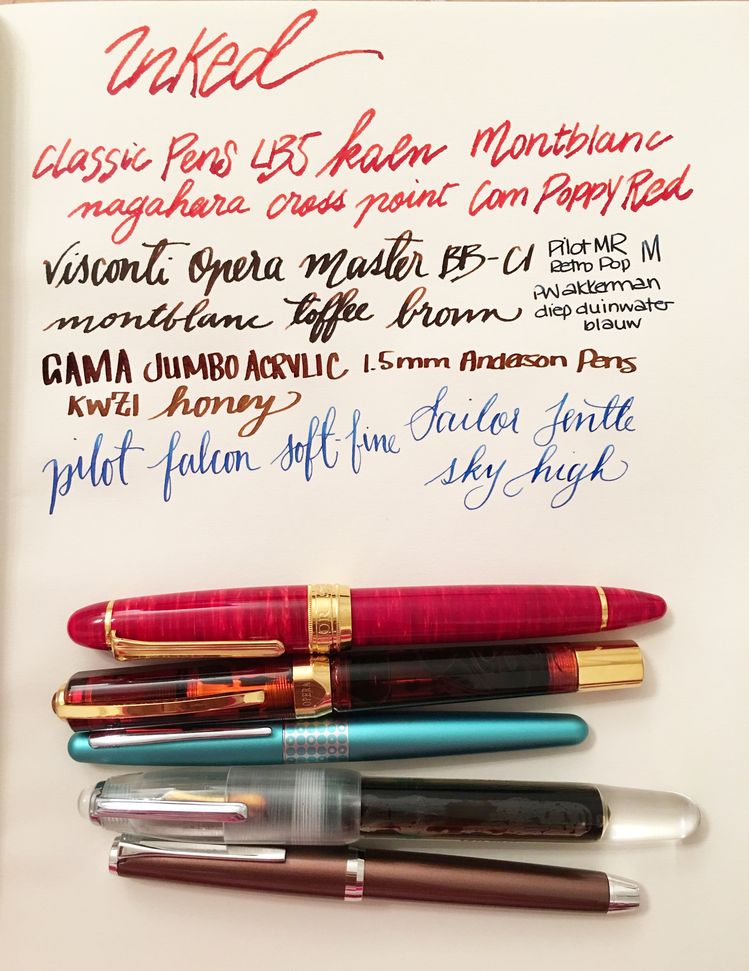 Inked
Classic Pens LB5 kaen Montblanc
nagahara cross point Corn Poppy Red
Visconti Opera master BB-CI
montblanc toffee brown
Pilot MR M
Retro Pop
PW akkerman
diep duinwater
blauw
GAMA JUMBO ACRYLIC 1.5mm Anderson Pens
KWZI honey
pilot falcon soft-fine Sailor Jentle
sky high
OPERA